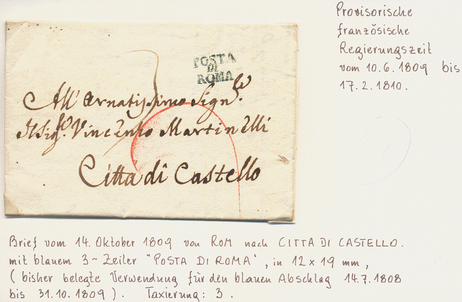 Provisorische
französische
Regierungszeit
vom 10.6.1809 bis
17.2.1810.
POSTA
DI
ROMA
3
All' Ornatissimo Sigre
Il Sigr Vincenzo Martinelli
Citta di Castello
Brief vom 14. Oktober 1809 von ROM nach CITTA DI CASTELLO.
mit blauem 3-Zeiler "POSTA DI ROMA", in 12 x 19 mm,
(bisher belegte Verwendung für den blauen Abschlag 14.7.1808
bis 31.10.1809). Taxierung: 3.